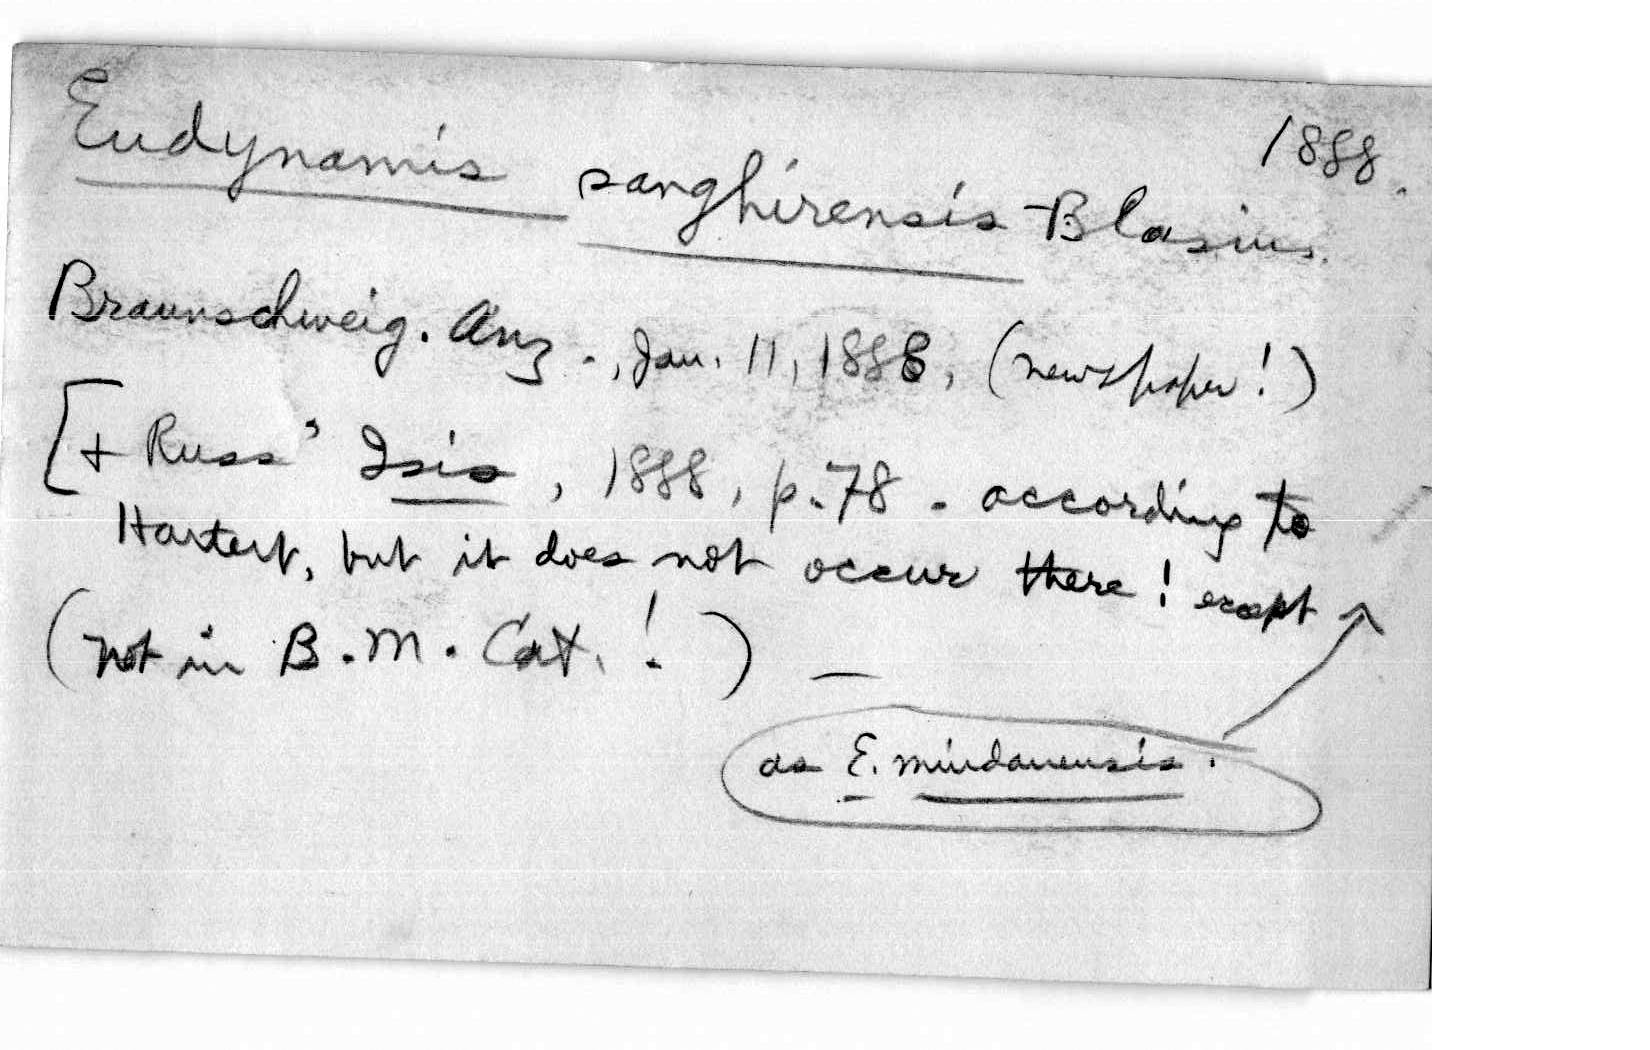 1888.
Eudynamis sanghirensis Blasius.
Braunschweig. Anz., Jan. 11, 1888, (newspaper!)
[+ Russ' Isis, 1888, p. 78. according to
Hartert, but it does not occur there! except
(not in B.M. Cat.!) —
as E. mindanensis.